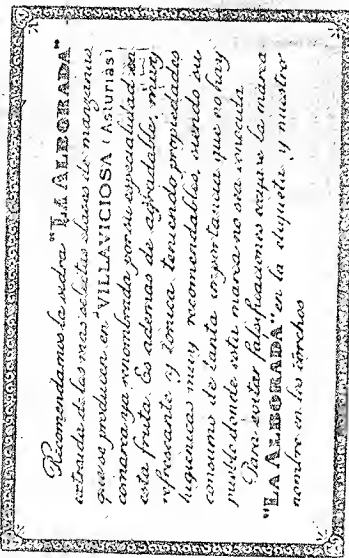 Recomendamos la sidra "LA ALBORADA"
extraida de las mas selectas clases de manzanas
que se producen en VILLAVICIOSA (Asturias)
comarca ya renombrada por su especialidad en
esta fruta. Es además de agradable, muy
refrescante y tónica teniendo propiedades
higiénicas muy recomendables, siendo su
consumo de tanta importancia que no hay
pueblo donde esta marca no sea conocida.
Para evitar falsificaciones exijase la marca
"LA ALBORADA" en la etiqueta y nuestro
nombre en los corchos